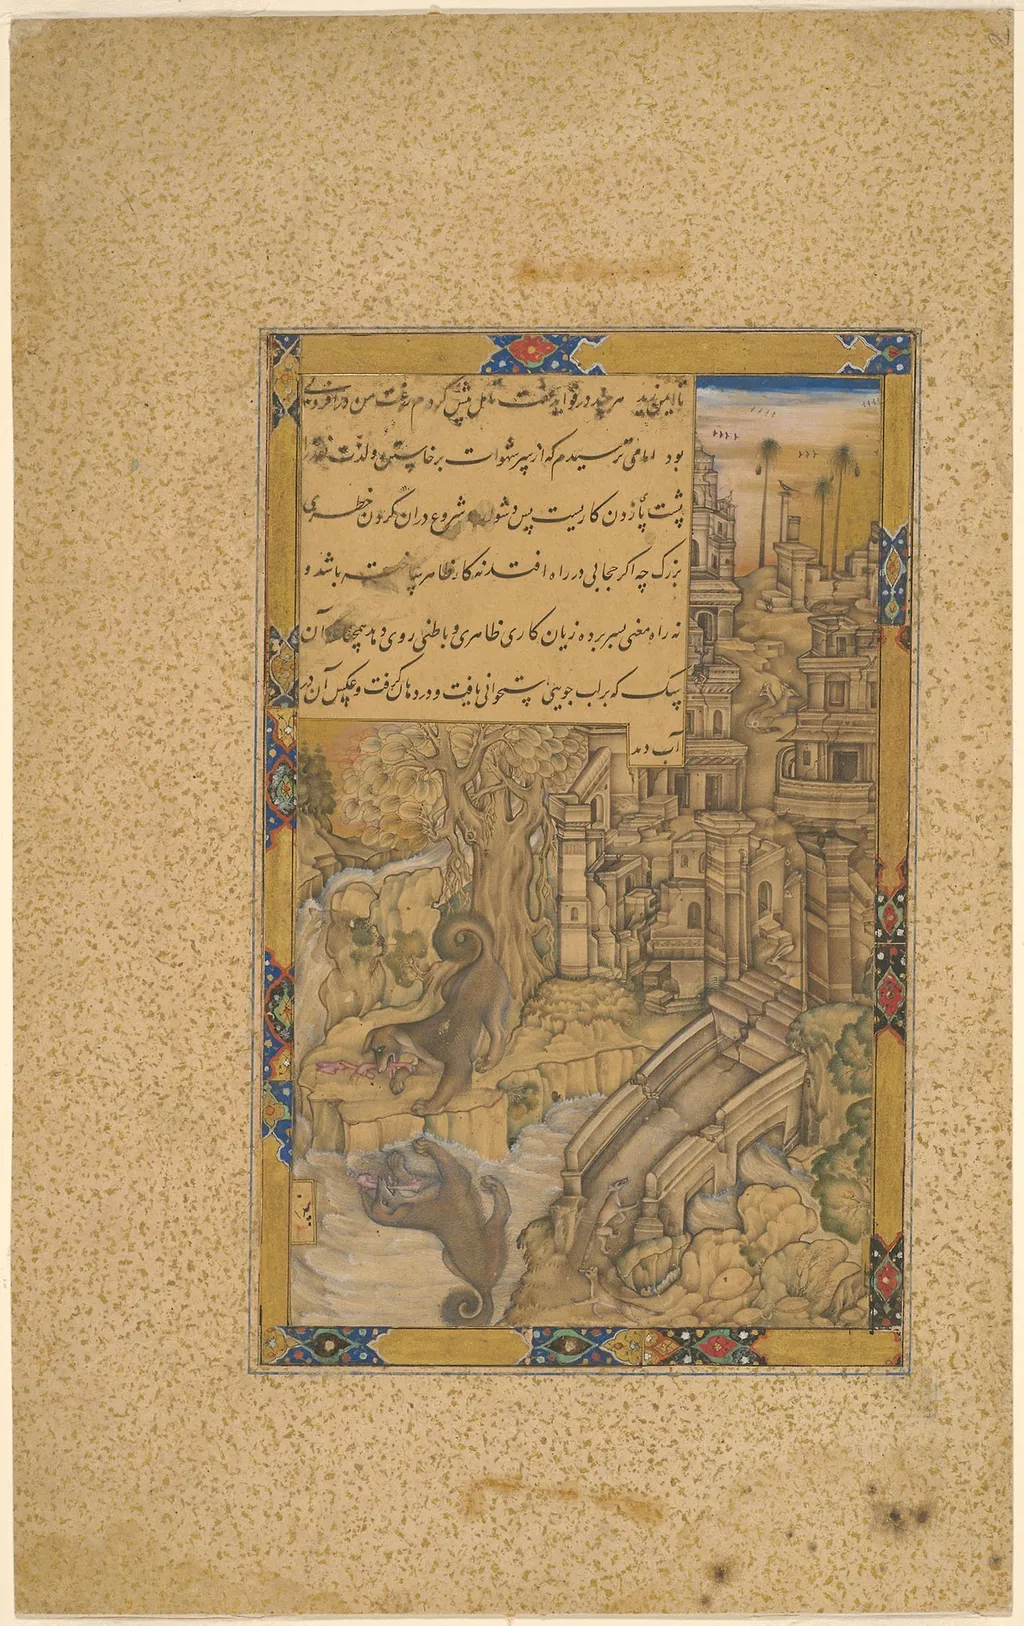 ناایمن زید هرچند در فواید عفت تامل بیش کردم رغبت من در افزونی
بود اما می ترسیدم که از سپر شهوات برخاستن و لذت نقد را
پشت پا زدن کاریست بس دشوار و شروع دران کردن خطری
بزرک چه اکر حجابی در راه افتد نه کار ظاهر ساخته باشد و
نه راه معنی بسر برده زیان کاری ظاهری و باطنی روی دهد همچنانکه آن
سک که بر لب جوی استخوانی یافت و در دهان کرفت و عکس آن در
آب دید